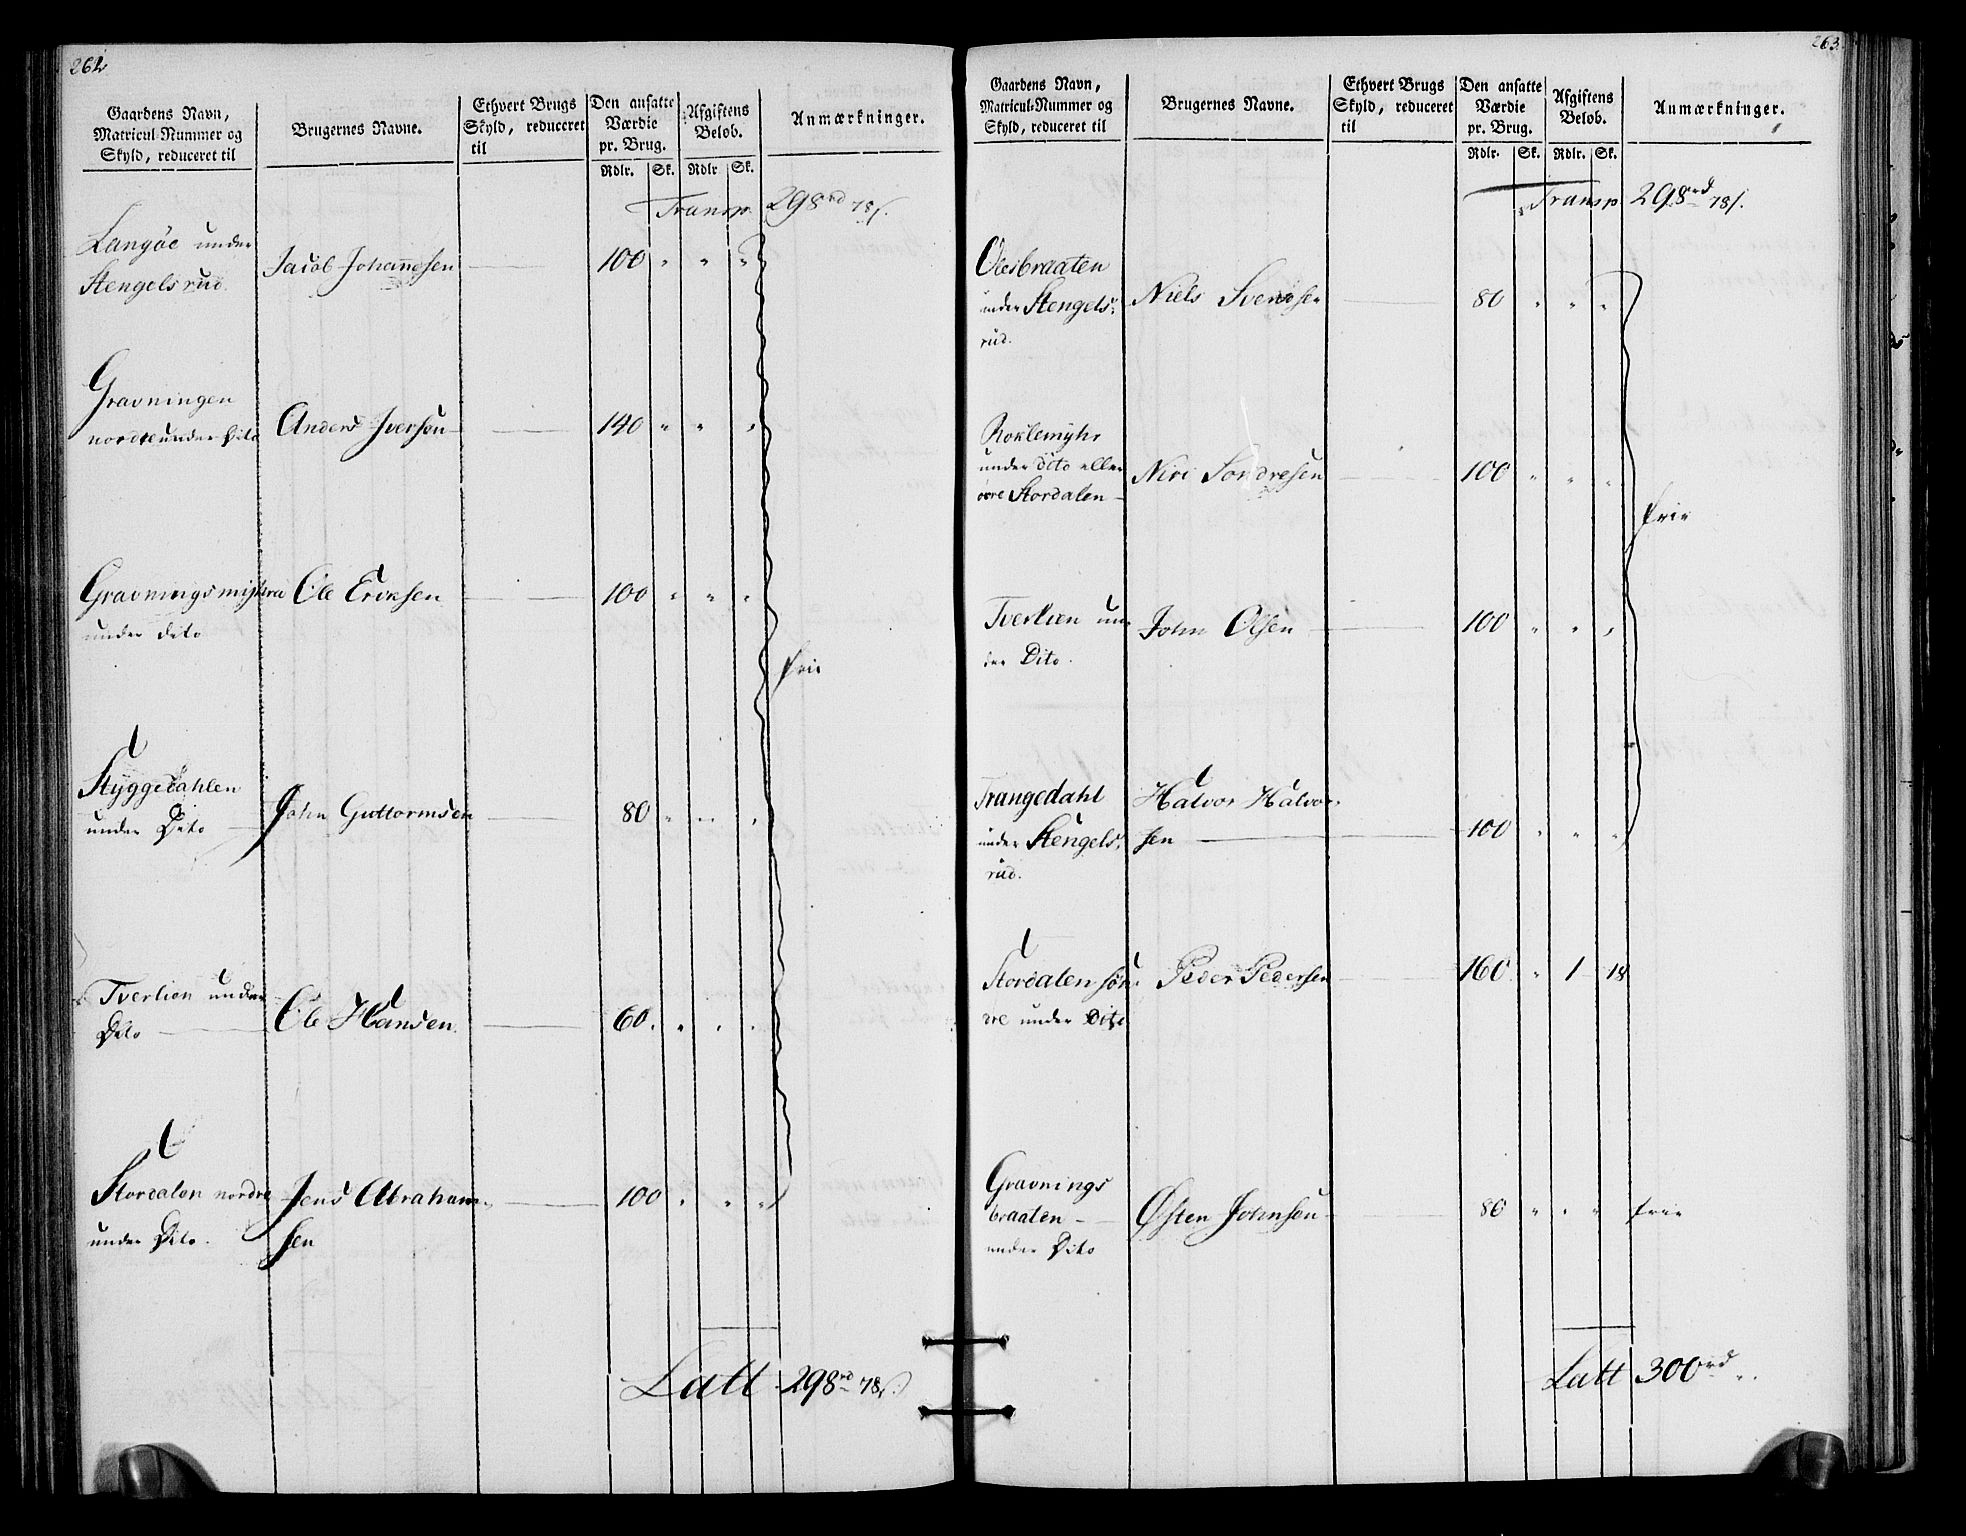 262
Gaardens Navn,
Matricul-Nummer og
Skyld, reduceret til
Brugernes Navne.
Ethvert Brugs
Skyld, reduceret
til
Den ansatte
Værdie
pr. Brug.
Rdlr. Sk.
Afgiftens
Beløb.
Rdlr Sk.
Anmærkninger.
Transp. 298rd 78s.
Langöe under
Stengelsrud. Jacob Johannesen 100 " " "
Gravningen
nordre under Dito Anders Iversen 140 " " "
Gravningsmyhra Ole Eriksen 100 " " "
under dito
frie
Styggedahlen
under Dito John Guttormsen 80 " " "
Tverlien under
Dito Ole Hansen 60 " " "
Stordalen nordre Jens Abraham-
under Dito. sen 100 " " "
Latt 298rd 78s.
263.
Gaardens Navn,
Matricul-Nummer og
Skyld, reduceret til
Brugernes Navne.
Ethvert Brugs
Skyld, reduceret
til
Den ansatte
Værdie
pr. Brug.
Rdlr. Sk.
Afgiftens
Beløb.
Rdlr. Sk.
Anmærkninger.
Transp 298rd 78s.
Olesbraaten
under Stengels-
rud. Niels Svendsen 80 " " "
under dito eller
övre Stordalen Niri Sondresen 100 " " "
frie
Tverlien un-
der Dito. John Olsen 100 " " "
Trangedahl Halvor Halvor-
under Stengels- sen 100 " " "
rud.
Stordalen sön- Peder Pedersen 160 " 1 18
dre under Dito
Gravnings
braaten Østen Johnsen 80 " " " frie
under Dito
Latt 300rd "